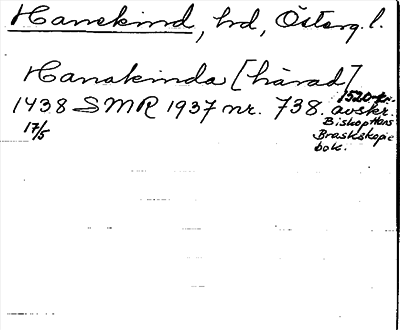 Hanekind, hd, Österg.l.
Hanakinda [härad]
1438 SMR 1937 nr. 738. avskr.
17/5
Biskop Hans
Braskskopie
bok.